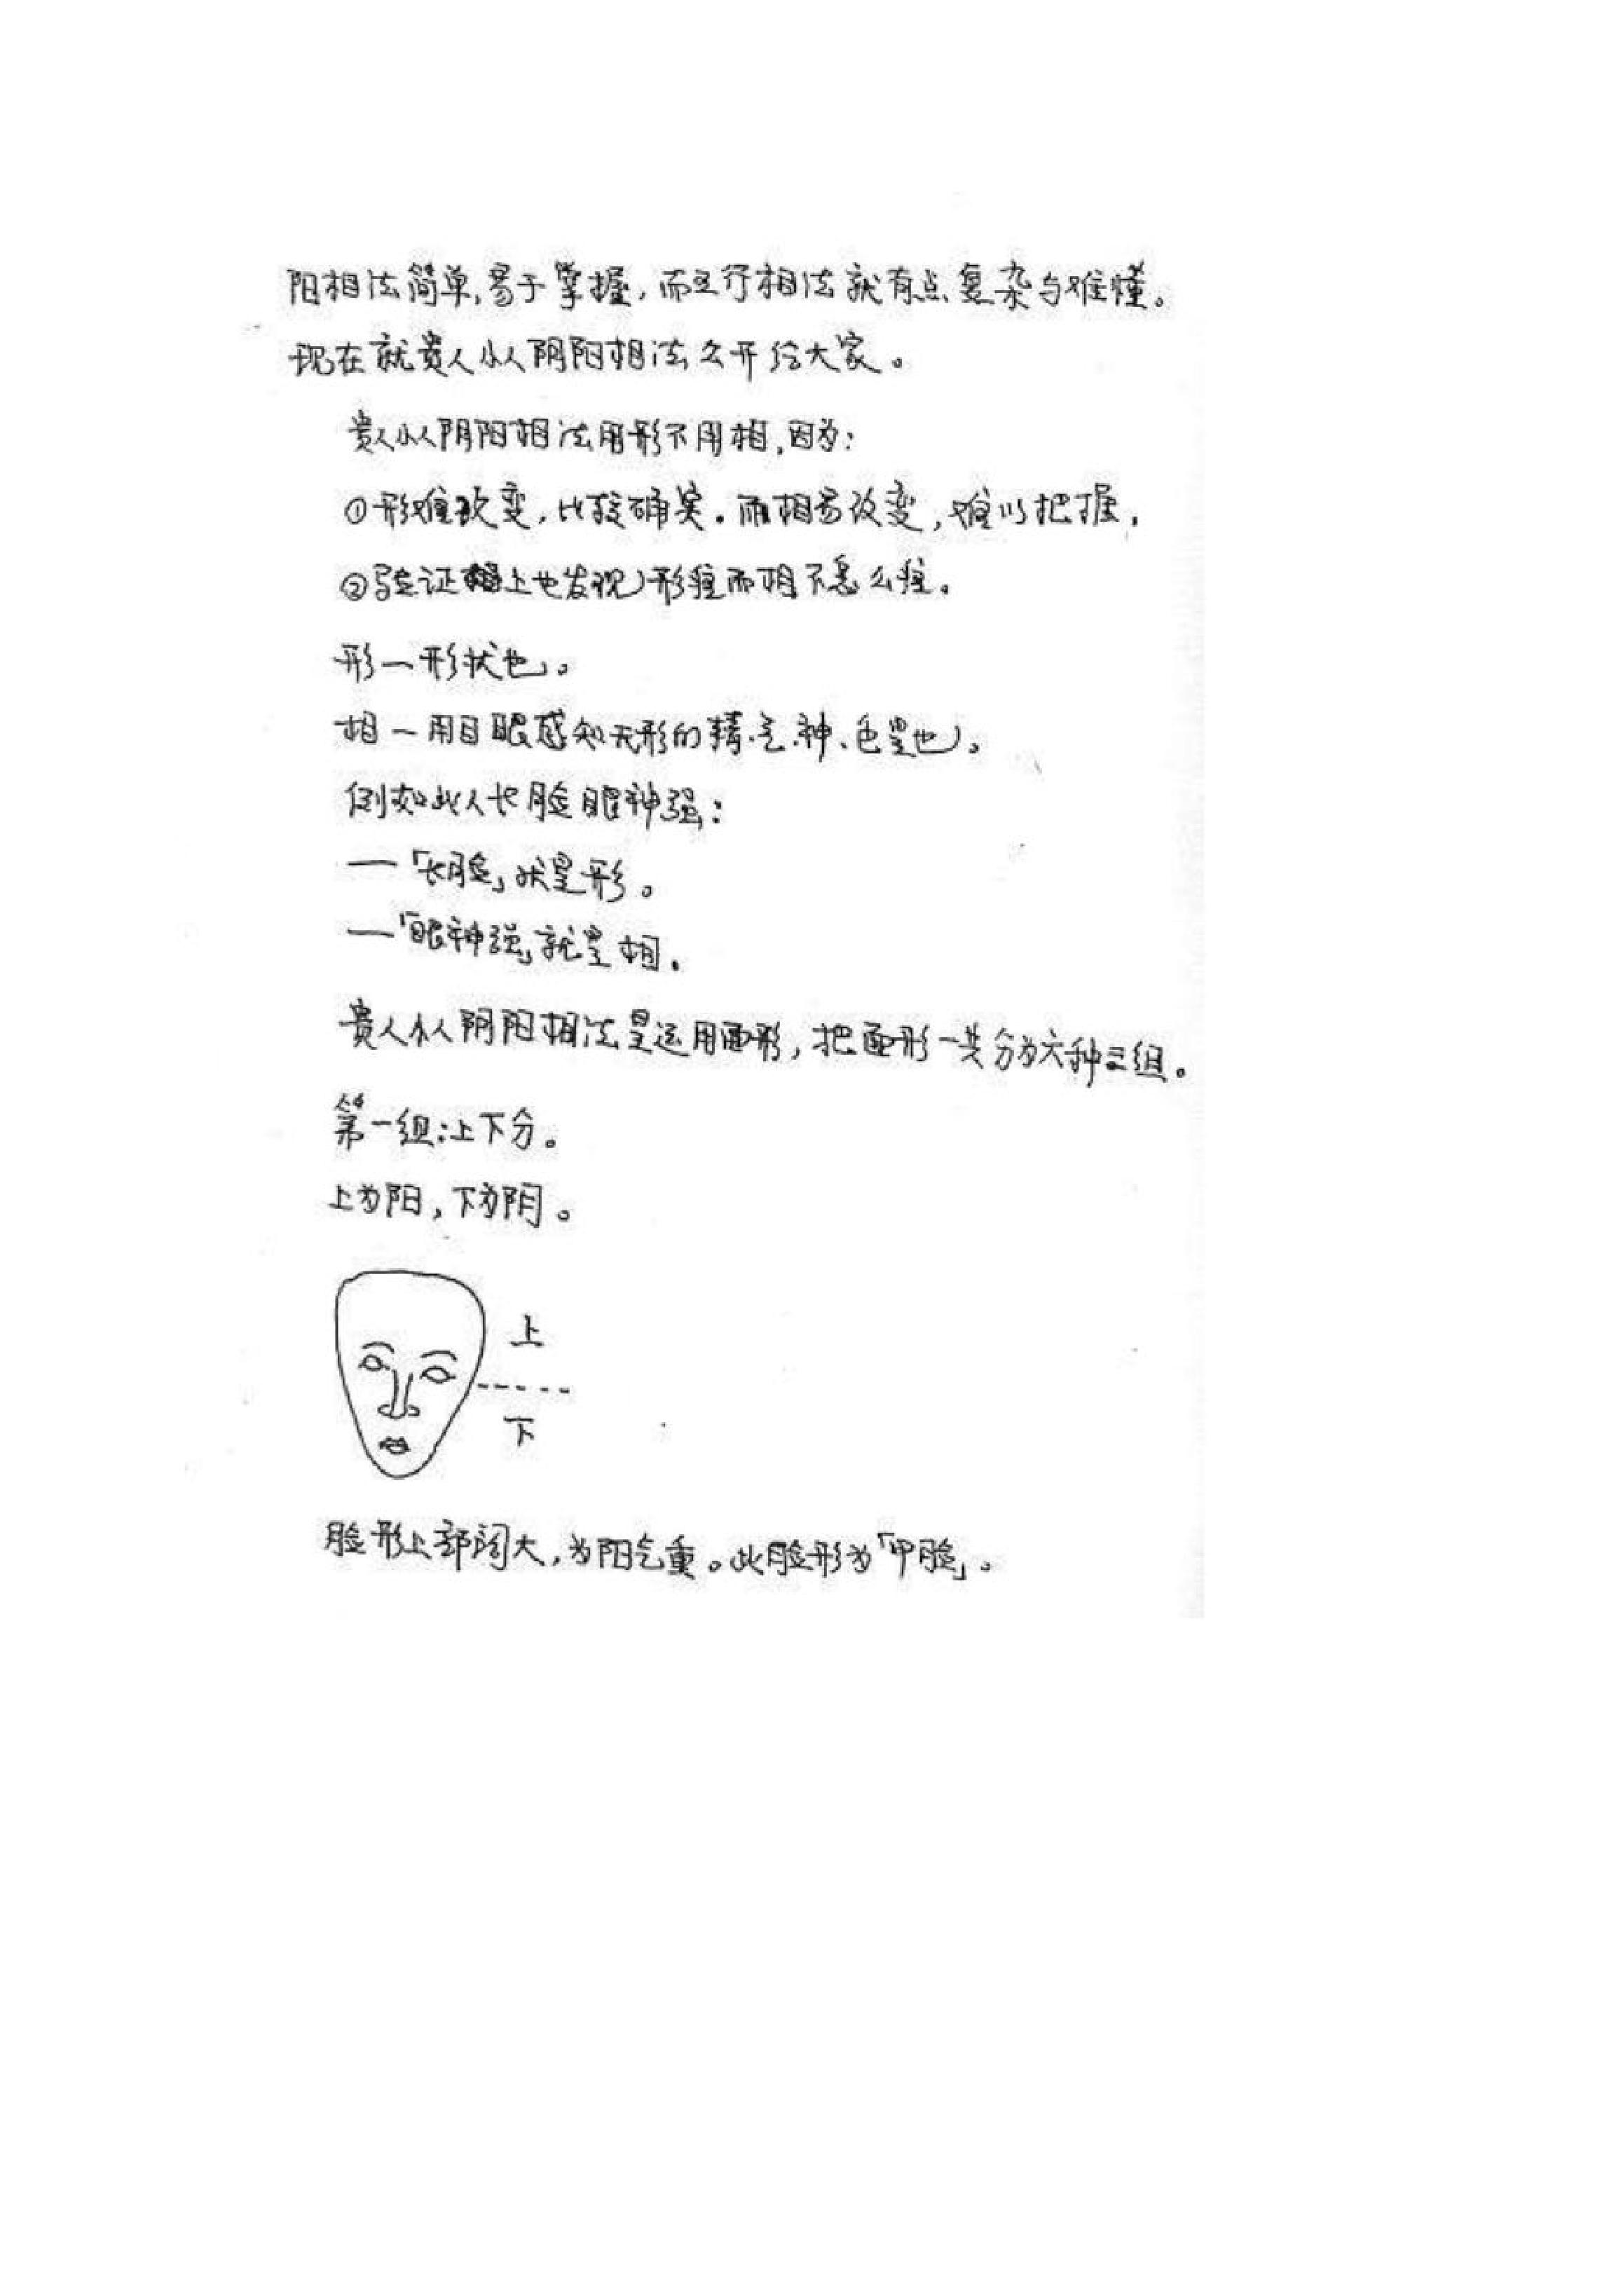 阳相法简单,易于掌握,而五行相法就有点复杂与难懂。
现在就贵人小人阴阳相法公开给大家。
贵人小人阴阳相法用形不用相,因为:
①形难改变,比较确实。而相易改变,难以把握,
②验证上也发现形准而相不怎么准。
形一形状也。
相一用目眼感知无形的精、气、神、色是也。
例如此人长脸眼神强:
一「长脸」就是形。
一「眼神强」就是相.
贵人小人阴阳相法是运用面形,把面形一共分为六种三组。
第一组:上下分。
上为阳,下为阴。
上
下
脸形上部阔大,为阳气重。此脸形为「甲脸」。